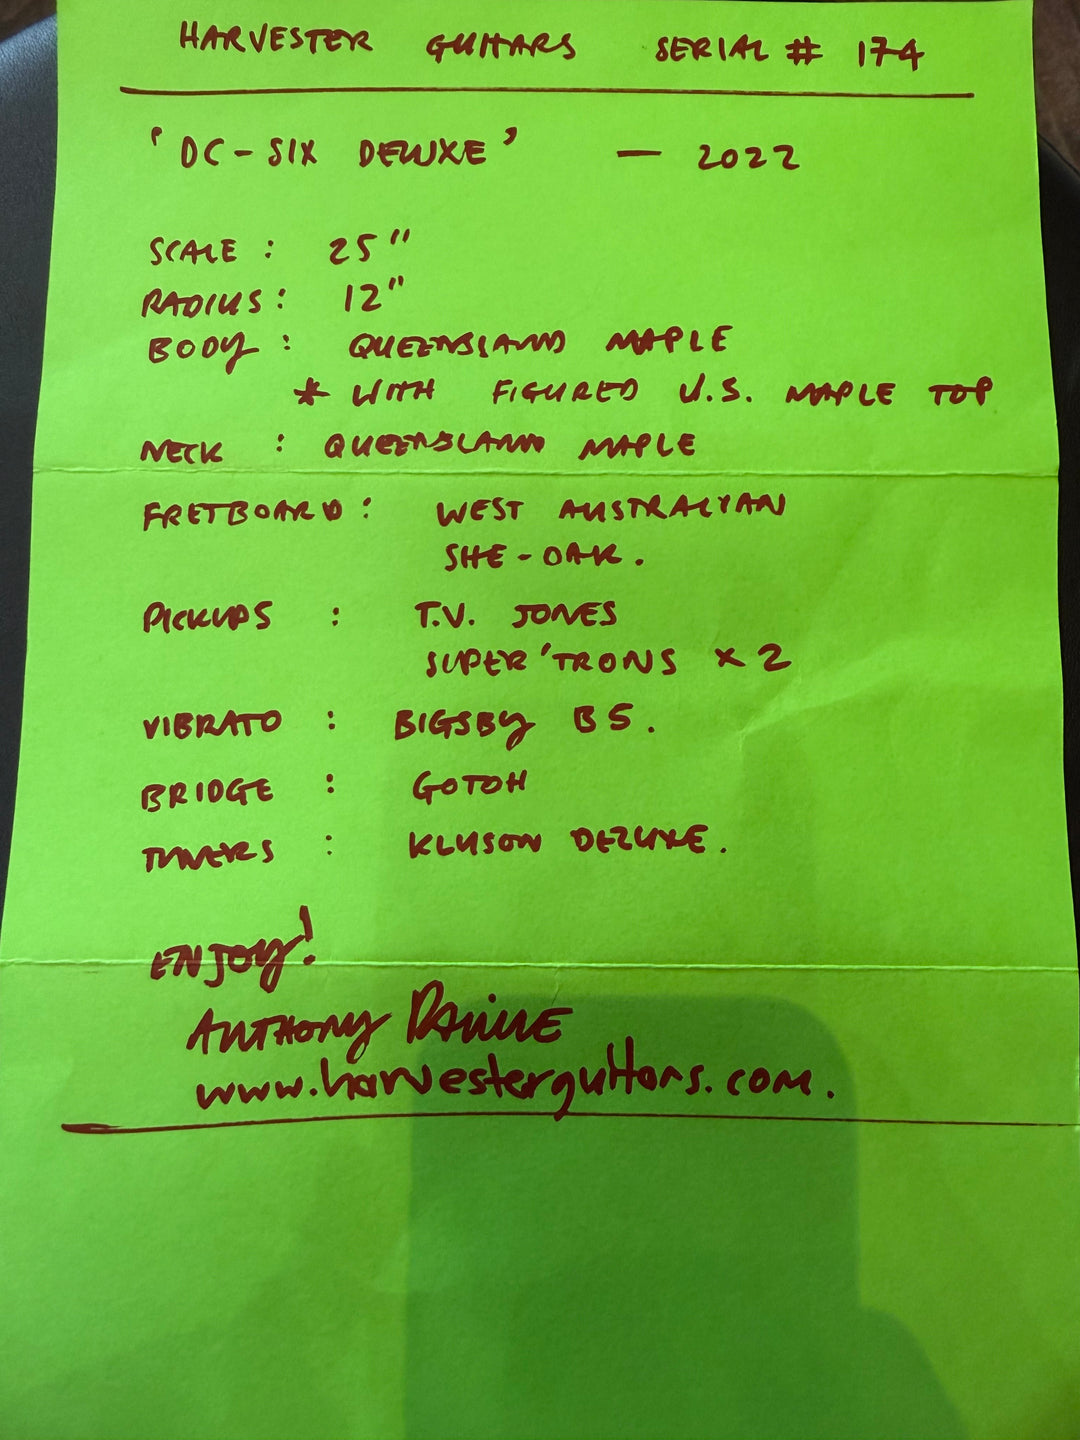 HARVESTER GUITARS SERIAL # 174
'DC-SIX DELUXE' — 2022
SCALE : 25"
RADIUS : 12"
BODY : QUEENSLAND MAPLE
* WITH FIGURED U.S. MAPLE TOP
NECK : QUEENSLAND MAPLE
FRETBOARD : WEST AUSTRALIAN
SHE-OAK.
PICKUPS : T.V. JONES
SUPER'TRONS x 2
VIBRATO : BIGSBY B5.
BRIDGE : GOTOH
TUNERS : KLUSON DELUXE.
ENJOY!
ANTHONY
www.harvesterguitars.com.